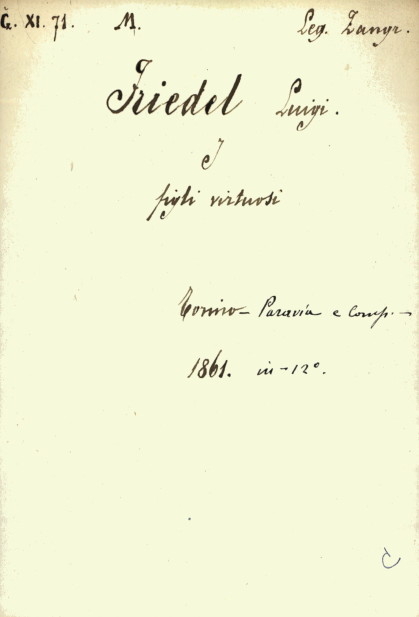 Č. XI. 71. M. Leg. Zangr.
Friedel Luigi.
I
figli virtuosi
Torino – Paravia e Comp. –
1861. in – 12°.